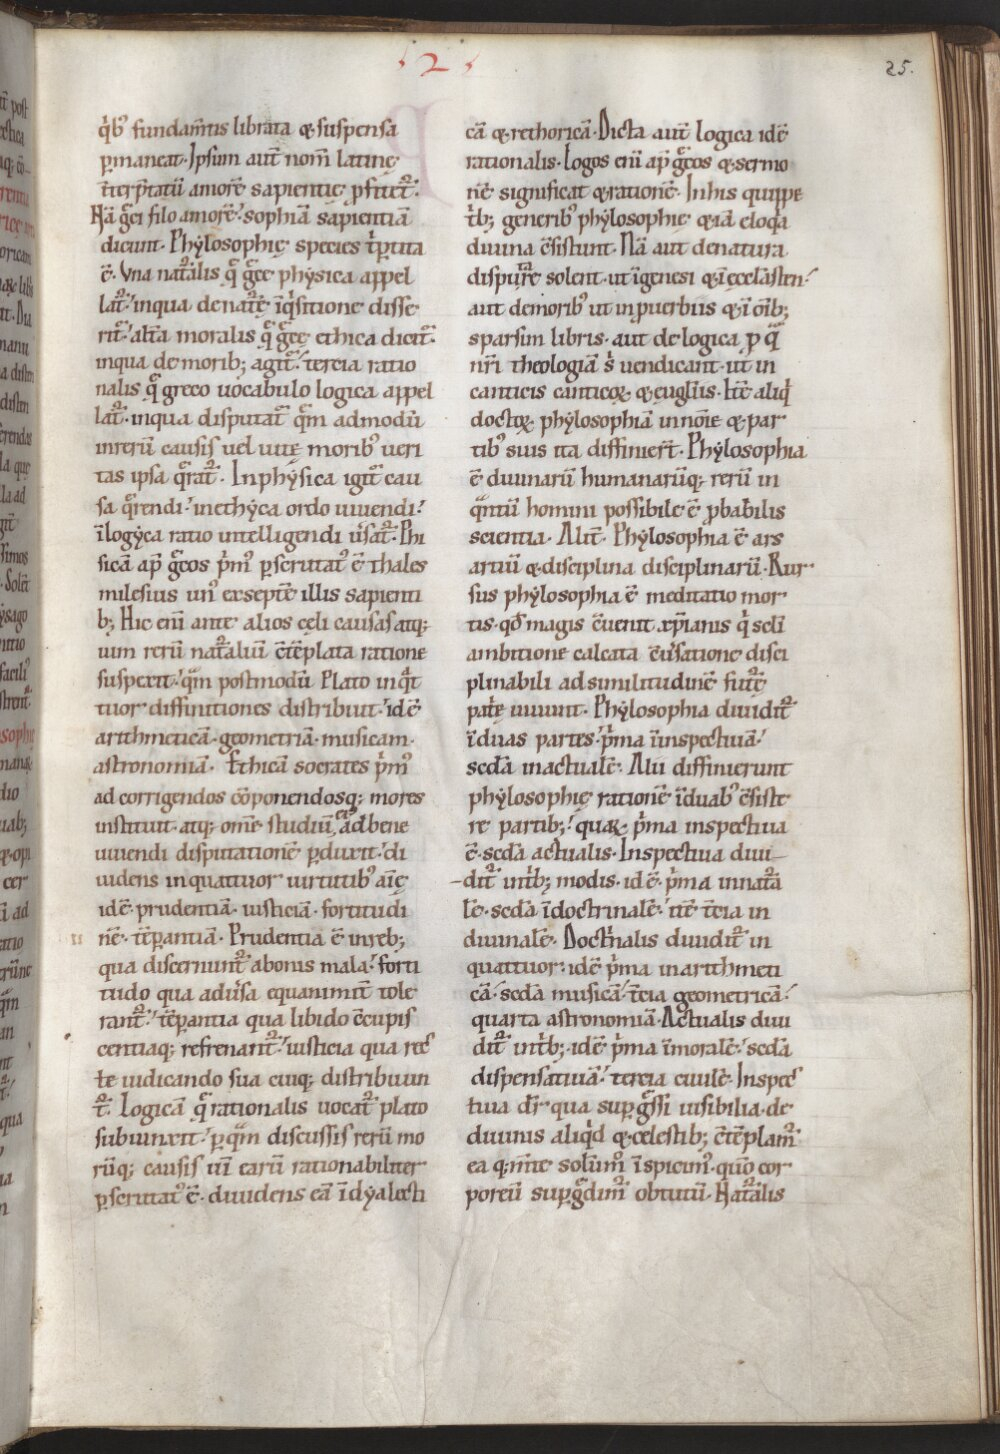 ·2·
25.
q̇b᷒ fundam̅tis librata &suspensa
p̱maneat· Ipsum aut̅ nom̅ latine
ıt̅erp̅tatū amorē sapientię p̱fitet᷑·
Nā g̅ci filo amorē· sophiā sapientiā
dicunt· Phylosophię species tˈp̱tita
ē· Vna nat᷑alis q̄ g̅ce physica appel
lat᷑· inqua denat᷑ę īq̇sitione disse
rit᷑· alt̅a moralis q̄ g̅cę ethica dicit᷑·
inqua demorib; agit᷑· tercia ratio
nalis q̄ greco uocabulo logica appel
lat᷑· inqua disputat᷑ q̄m admodū
inrerū causis uel uitę morib᷒ ueri
tas ipsa q̄rat᷑· In physica igit᷑ cau
sa q̄rendi· inethyca ordo uiuendi·
īlogyca ratio intelligendi ūsat᷑· Phi
sicā ap̄ g̅cos ṗm᷒ p̱scrutat᷒ ē thales
milesius un᷒ exseptē illis sapienti
b; Hic eni̅ ante alios cęli causas atq;
uim rerū nat᷑aliū c̄tēplata ratione
suspexit· q̄m postmodū Plato inq̄t
tuor diffinitiones distribuit· idē
arithmeticā· geometriā· musicam·
astronomiā· Ethicā socrates ṗm᷒
ad corrigendos cōponendosq; mores
instituit· atq; om̅e studiū ei᷒ adbene
uiuendi disputationē p̱duxit· di
uidens inquattuor uirtutib᷒ aīę
idē prudentiā· iusticiā· fortitudi
nē· tēp̱antiā· Prudentia ē inreb;
qua discernunt᷑ abonis mala· forti
tudo qua adūsa equanimit̅ tole
rant᷑· tēp̱antia qua libido c̄cupis
centiaq; refrenant᷑· iusticia qua rec
te iudicando sua cuiq; distribuun
t᷑· Logicā q̄ rationalis uocat᷑ plato
subiunxit· p̱ q̄m discussis rerū mo
rūq; causis uī earū rationabiliter
p̱scrutat᷒ ē· diuidens eā īdyalecti
cā &rethoricā· Dicta aut̅ logica idē
rationalis· Logos eni̅ ap̄ g̅cos &sermo
nē significat &rationē· Inhis quippe
tˈb; generib᷒ phylosophię &iā eloq̄a
diuina c̄sistunt· Nā aut denatura
disputare solent· ut īgenesi &īęcclesten·
aut demorib᷒ ut inpuerbiis &ī oīb;
sparsim libris· aut de logica p̱ q̄
nr̅i theologiā ṡ uendicant· ut in
canticis canticoꝝ· &eug̅liis· Itē aliq̇
doctoꝝ phylosophiā innoīe &par
tib᷒ suis ita diffinier̅t· Phylosophia
ē diuinarū humanarūq; rerū in
q̄ntū homini possibile ē p̱babilis
scientia· Alit̅· Phylosophia ē ars
artiū &disciplina disciplinarū· Rur
sus phylosophia ē meditatio mor
tis· qđ magis c̄uenit xp̅ianis q̇ scl̅i
ambitione calcata c̄ūsatione disci
plinabili adsimilitudinē fut᷑ę
patˈę uiuunt· Phylosophia diuidit᷑
īduas partes· ṗma īinspectiuā·
scd̅a inactualē· Alii diffinierunt
phylosophię rationē īduab᷒ c̄siste
re partib;· quaꝝ ṗma inspectiua
ē· scd̅a actualis· Inspectiua diui–
dit᷑ intˈb; modis· id ē· ṗma innat᷑a
lē· scd̅a īdoctrinalē· itē t̅cia in
diuinalē· Doctˈnalis diuidit᷑ in
quattuor· idē ṗma inarithmeti
cā· scd̅a musicā· t̅cia geometricā·
quarta astronomiā· Actualis diui
dit᷑ intˈb;· id ē· ṗma īmoralē· scd̅a
dispensatiuā· tercia ciuilē· Inspec
tiua dr̅ qua sup̱g̅ssi uisibilia· de
diuinis aliq̇d &cęlestib; c̄tēplam᷒
ea q; m̅te solūm̅ īspicim᷒· q̄m̅ cor
poreū sup̱g̅dim᷒ obtutū· Nat᷑alis